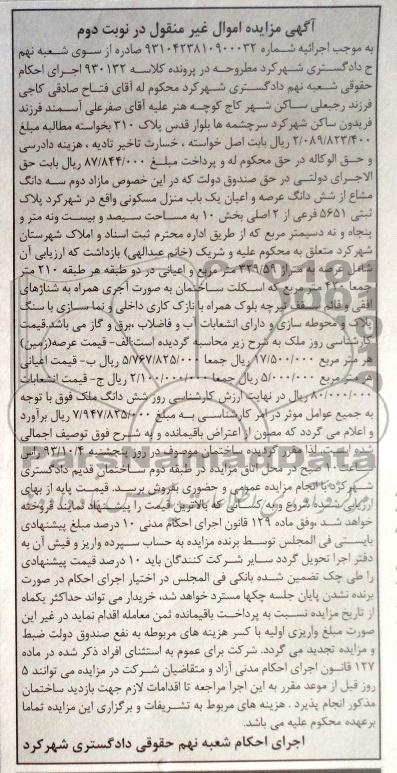 آگهی مزایده اموال غیر منقول در نوبت دوم
به موجب اجرائیه شماره ۹۳۱۰۴۲۳۸۱۰۹۰۰۰۳۲ صادره از سوی شعبه نهم
ح دادگستری شهرکرد مطروحه در پرونده کلاسه ۹۳۰۱۳۲ اجرای احکام
حقوقی شعبه نهم دادگستری شهرکرد محکوم له آقای فتاح صادقی کاجی
فرزند رجبعلی ساکن شهر کاج کوچه هنر علیه آقای صفرعلی آسمند فرزند
فریدون ساکن شهرکرد سرچشمه ها بلوار قدس پلاک ۳۱۰ بخواسته مطالبه مبلغ
۲/۰۸۹/۸۲۳/۴۰۰ ریال بابت اصل خواسته ، خسارت تاخیر تادیه ، هزینه دادرسی
و حق الوکاله در حق محکوم له و پرداخت مبلغ ۸۷/۸۴۴/۰۰۰ ریال بابت حق
الاجرای دولتی در حق صندوق دولت که در این خصوص مازاد دوم سه دانگ
مشاع از شش دانگ عرصه و اعیان یک باب منزل مسکونی واقع در شهرکرد پلاک
ثبتی ۵۶۵۱ فرعی از ۲ اصلی بخش ۱۰ به مساحت سیصد و بیست ونه متر و
پنجاه و نه دسیمتر مربع که از طریق اداره محترم ثبت اسناد و املاک شهرستان
شهرکرد متعلق به محکوم علیه و شریک (خانم عبدالهی) بازداشت که ارزیابی آن
شامل عرصه به متراژ ۳۲۹/۵۹ متر مربع و اعیانی در دو طبقه هر طبقه ۲۱۰ متر
جمعا ۴۲۰ متر مربع که اسکلت ساختمان به صورت آجری همراه به شناژهای
افقی و قائم سقف تیرچه بلوک همراه با نازک کاری داخلی و نما سازی با سنگ
پلاک و محوطه سازی و دارای انشعابات آب و فاضلاب ،برق و گاز می باشد.قیمت
کارشناسی روز ملک به شرح زیر محاسبه گردیده است:الف- قیمت عرصه(زمین)
هر متر مربع ۱۷/۵۰۰/۰۰۰ ریال جمعا ۵/۷۶۷/۸۲۵/۰۰۰ ریال ب- قیمت اعیانی
هر متر مربع ۵/۰۰۰/۰۰۰ ریال جمعا ۲/۱۰۰/۰۰۰/۰۰۰ ریال ج- قیمت انشعابات
۸۰/۰۰۰/۰۰۰ ریال در نهایت ارزش کارشناسی روز شش دانگ ملک فوق با توجه
به جمیع عوامل موثر در امر کارشناسی به مبلغ ۷/۹۴۷/۸۲۵/۰۰۰ ریال برآورد
و اعلام می گردد که مصون از اعتراض باقیمانده و به شرح فوق توصیف اجمالی
شده است. لذا مقرر گردیده ساختمان موصوف در روز پنجشنبه ۹۳/۱۰/۴ راس
ساعت ۱۰ صبح در محل اتاق مزایده در طبقه دوم ساختمان قدیم دادگستری
شهرکرد با انجام مزایده عمومی و حضوری بفروش برسد. قیمت پایه از بهای
ارزیابی شده شروع و به کسانی که بالاترین قیمت را پیشنهاد نمایند فروخته
خواهد شد ،وفق ماده ۱۲۹ قانون اجرای احکام مدنی ۱۰ درصد مبلغ پیشنهادی
بایستی فی المجلس توسط برنده مزایده به حساب سپرده واریز و فیش آن به
دفتر اجرا تحویل گردد سایر شرکت کنندگان باید ۱۰ درصد قیمت پیشنهادی
را طی چک تضمین شده بانکی فی المجلس در اختیار اجرای احکام در صورت
برنده نشدن پایان جلسه چکها مسترد خواهد شد، خریدار می تواند حداکثر یکماه
از تاریخ مزایده نسبت به پرداخت باقیمانده ثمن معامله اقدام نماید در غیر این
صورت مبلغ واریزی اولیه با کسر هزینه های مربوطه به نفع صندوق دولت ضبط
و مزایده تجدید می گردد. شرکت برای عموم به استثنای افراد ذکر شده در ماده
۱۲۷ قانون اجرای احکام مدنی آزاد و متقاضیان شرکت در مزایده می توانند ۵
روز قبل از موعد مقرر به این اجرا مراجعه تا اقدامات لازم جهت بازدید ساختمان
مذکور انجام پذیرد . هزینه های مربوط به تشریفات و برگزاری این مزایده تماما
برعهده محکوم علیه می باشد.
اجرای احکام شعبه نهم حقوقی دادگستری شهرکرد